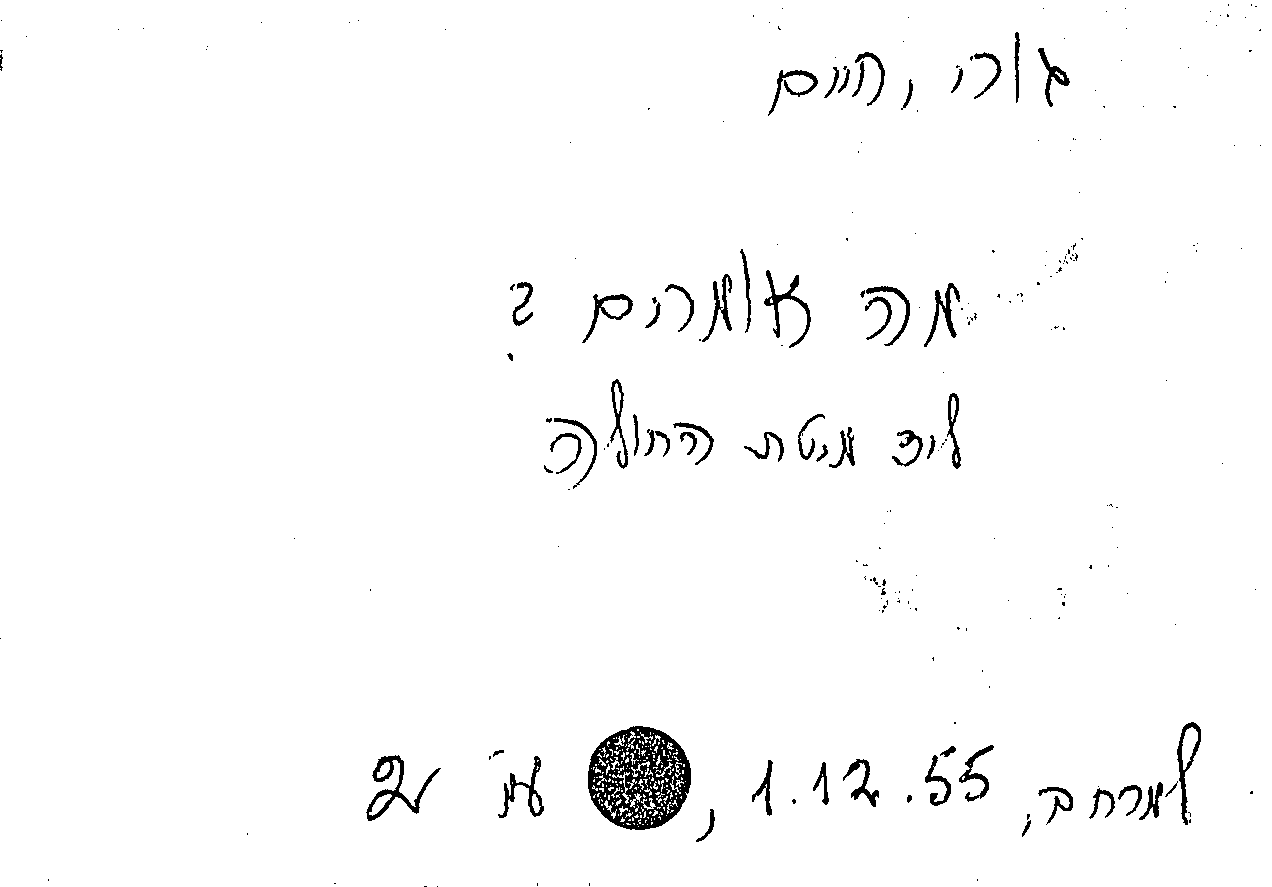 גורי, חיים
מה אומרים ?
ליד מיטת החולה
למרחב, 1.12.55, עמ' 2